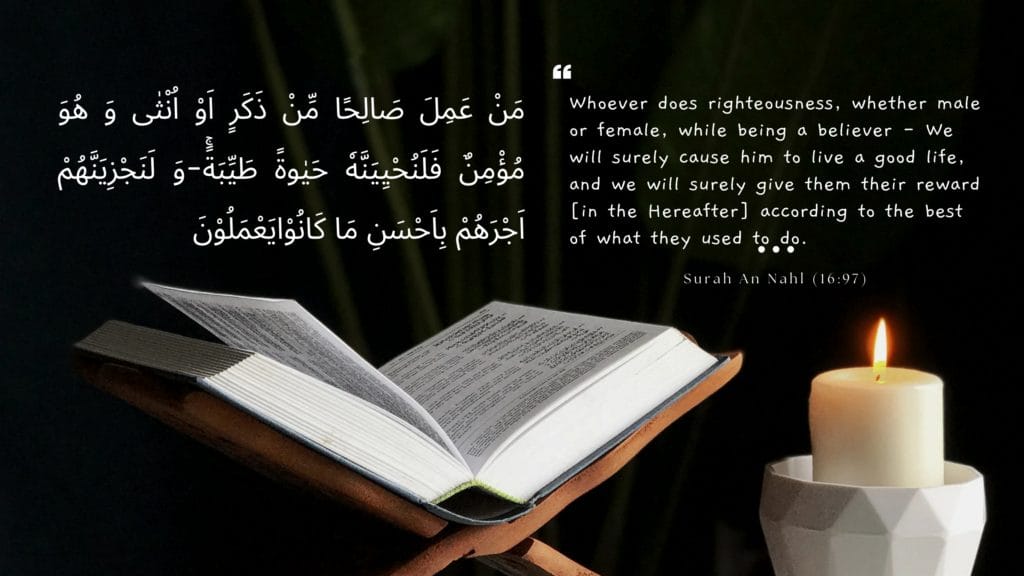 مَنْ عَمِلَ صَالِحًا مِّنْ ذَكَرٍ اَوْ اُنْثٰى وَ هُوَ
مُؤْمِنٌ فَلَنُحْیِیَنَّهٗ حَیٰوةً طَیِّبَةًۚ-وَ لَنَجْزِیَنَّهُمْ
اَجْرَهُمْ بِاَحْسَنِ مَا كَانُوْایَعْمَلُوْنَ
❝
Whoever does righteousness, whether male
or female, while being a believer - We
will surely cause him to live a good life,
and we will surely give them their reward
[in the Hereafter] according to the best
of what they used to do.
Surah An Nahl (16:97)